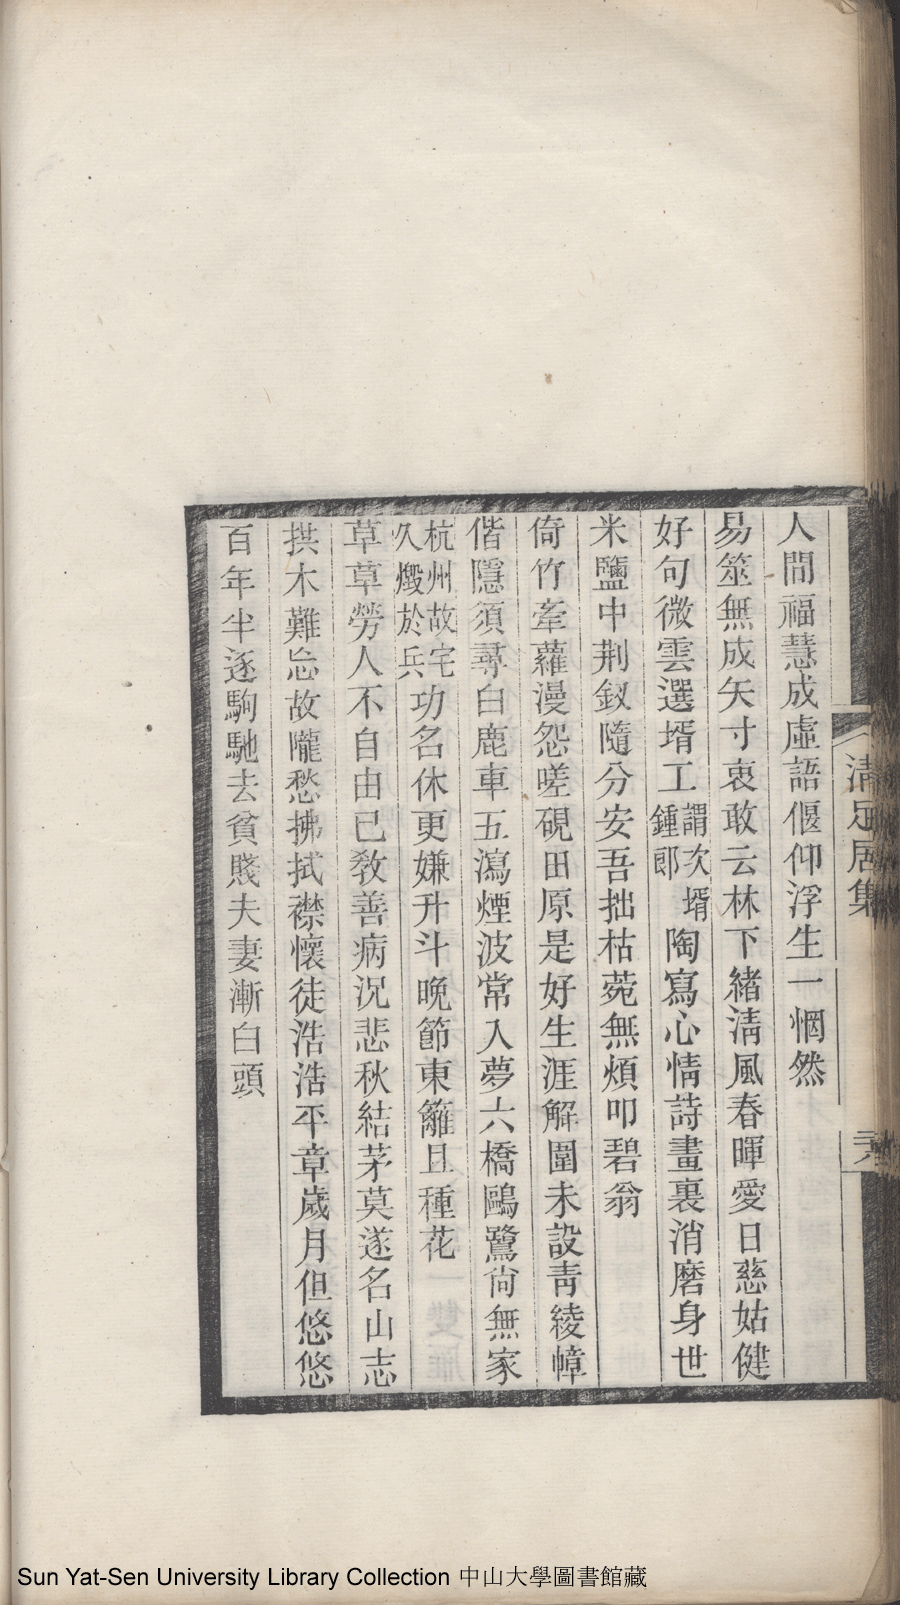 清足居集
六
人間福慧成虛語偃仰浮生一惘然
易筮無成矢寸衷敢云林下緒清風春暉愛日慈姑健
好句微雲選壻工謂次壻鍾郎陶寫心情詩畫裏消磨身世
米鹽中荆釵隨分安吾拙枯菀無煩叩碧翁
倚竹牽蘿漫怨嗟硯田原是好生涯解圍未設青綾幛
偕隱須尋白鹿車五瀉煙波常入夢六橋鷗鷺尙無家
杭州故宅久燬於兵功名休更嫌升斗晚節東籬且種花
草草勞人不自由已敎善病況悲秋結茅莫遂名山志
拱木難忘故隴愁拂拭襟懷徒浩浩平章歲月但悠悠
百年半逐駒馳去貧賤夫妻漸白頭
Sun Yat-Sen University Library Collection 中山大學圖書館藏